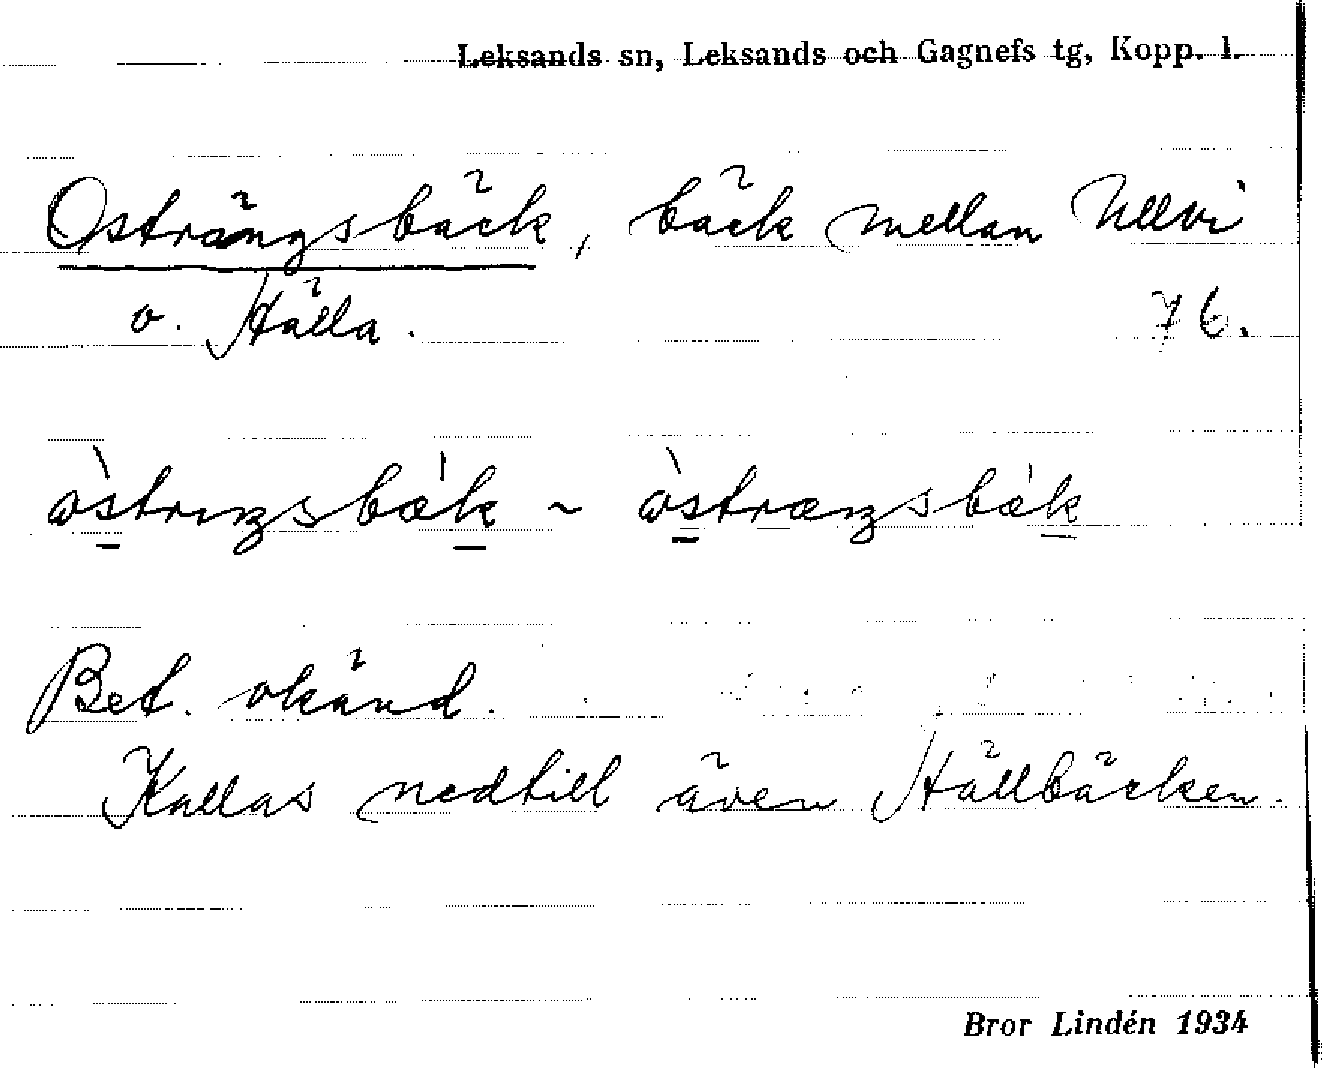 Leksands sn, Leksands och Gagnefs tg, Kopp. l.
Osträngsbäck, bäck mellan Ullvi
o. Hälla. 76.
òstrıŋsbǽk ~ òstræŋsbǽk
Bet. okänd.
Kallas nedtill även Hällbäcken.
Bror Lindén 1934